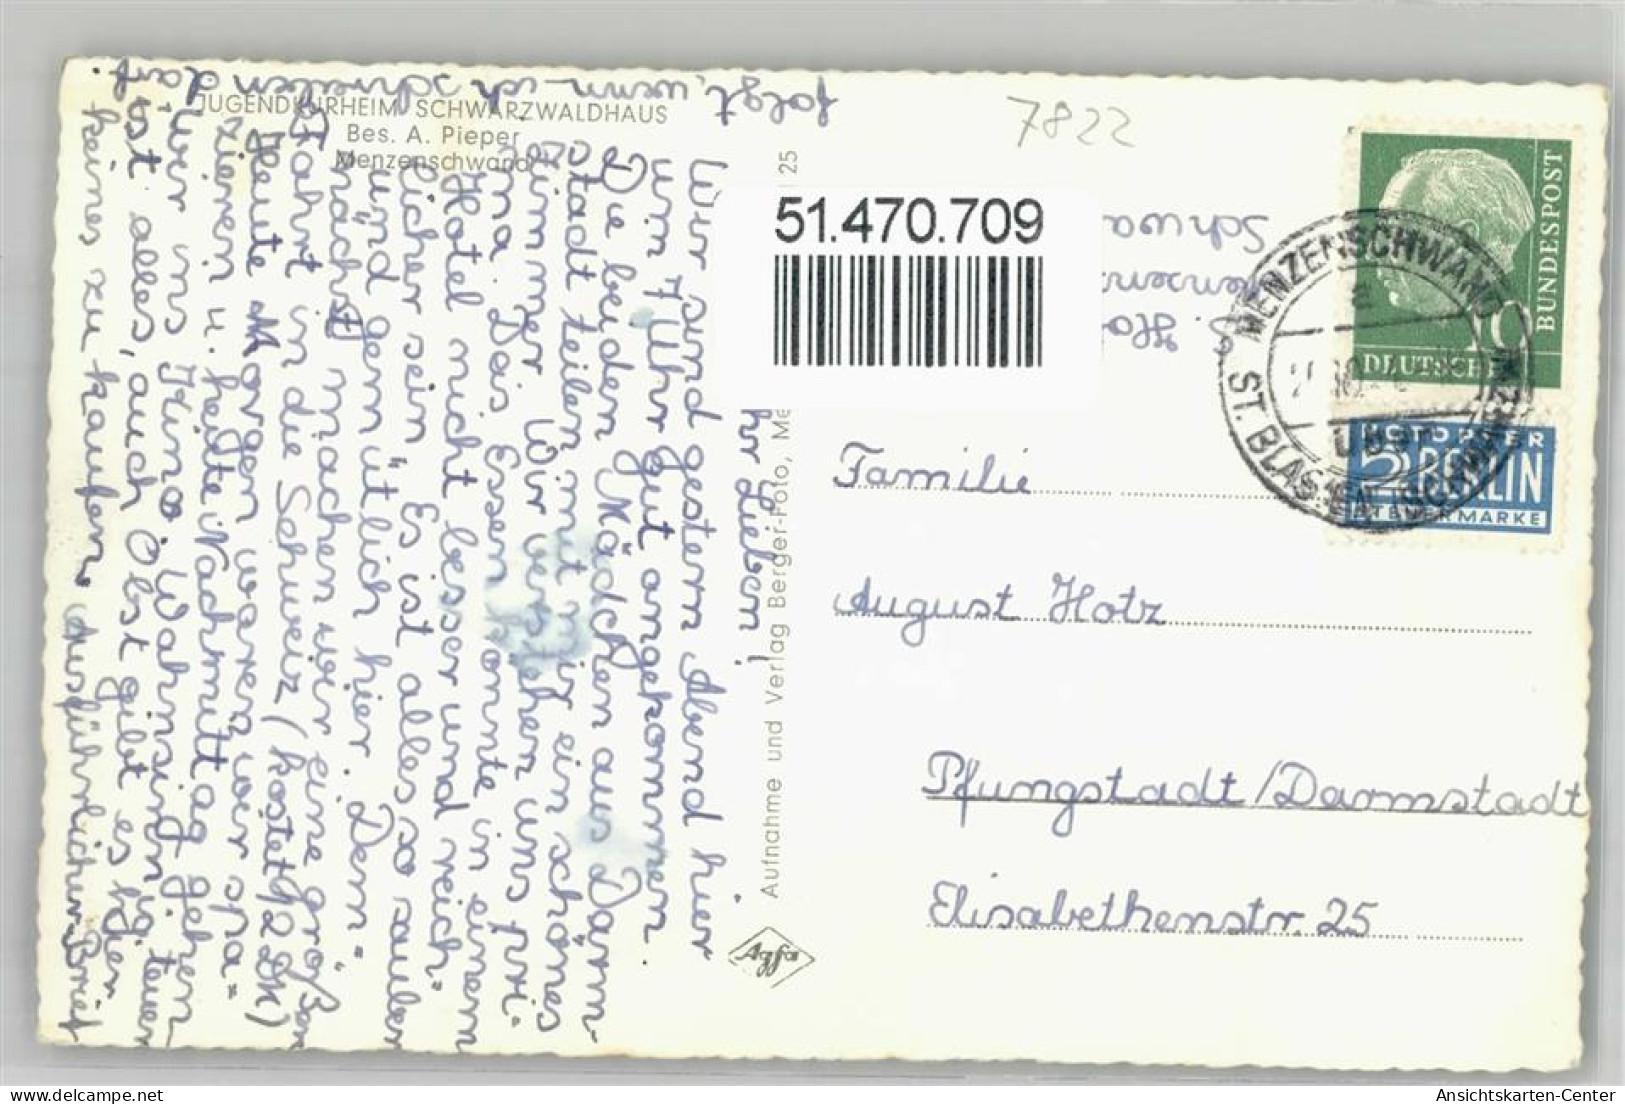 JUGENDKURHEIM SCHWARZWALDHAUS
Bes. A. Pieper
Menzenschwand
7822
51.470.709
Ihr Lieben!
Wir sind gestern Abend hier
um 7 Uhr gut angekommen.
Die beiden Mädchen aus Darm-
stadt teilen mit mir ein schönes
Zimmer. Wir verstehen uns pri-
ma. Das Essen könnte in einem
Hotel nicht besser und reich-
licher sein. Es ist alles so sauber
und gemütlich hier. Dem-
nächst machen wir eine große
Fahrt in die Schweiz (kostet 12 DM)
Heute Morgen waren wir spa-
zieren u. heute Nachmittag gehen
wir ins Kino. Wahnsinnig teuer
ist alles, auch Obst gibt es hier
keines zu kaufen. Ausführlicher Brief
folgt, wenn ich schreiben darf
Aufnahme und Verlag Berger-Foto, Me
125
Agfa
Schwa
Menzen
Familie
August Hotz
Pfungstadt/Darmstadt
Elisabethenstr. 25
DEUTSCHE
BUNDESPOST
10
NOTOPFER
2 BERLIN
STEUERMARKE
MENZENSCHWAND
ST. BLASIEN
Ansichtskarten-Center